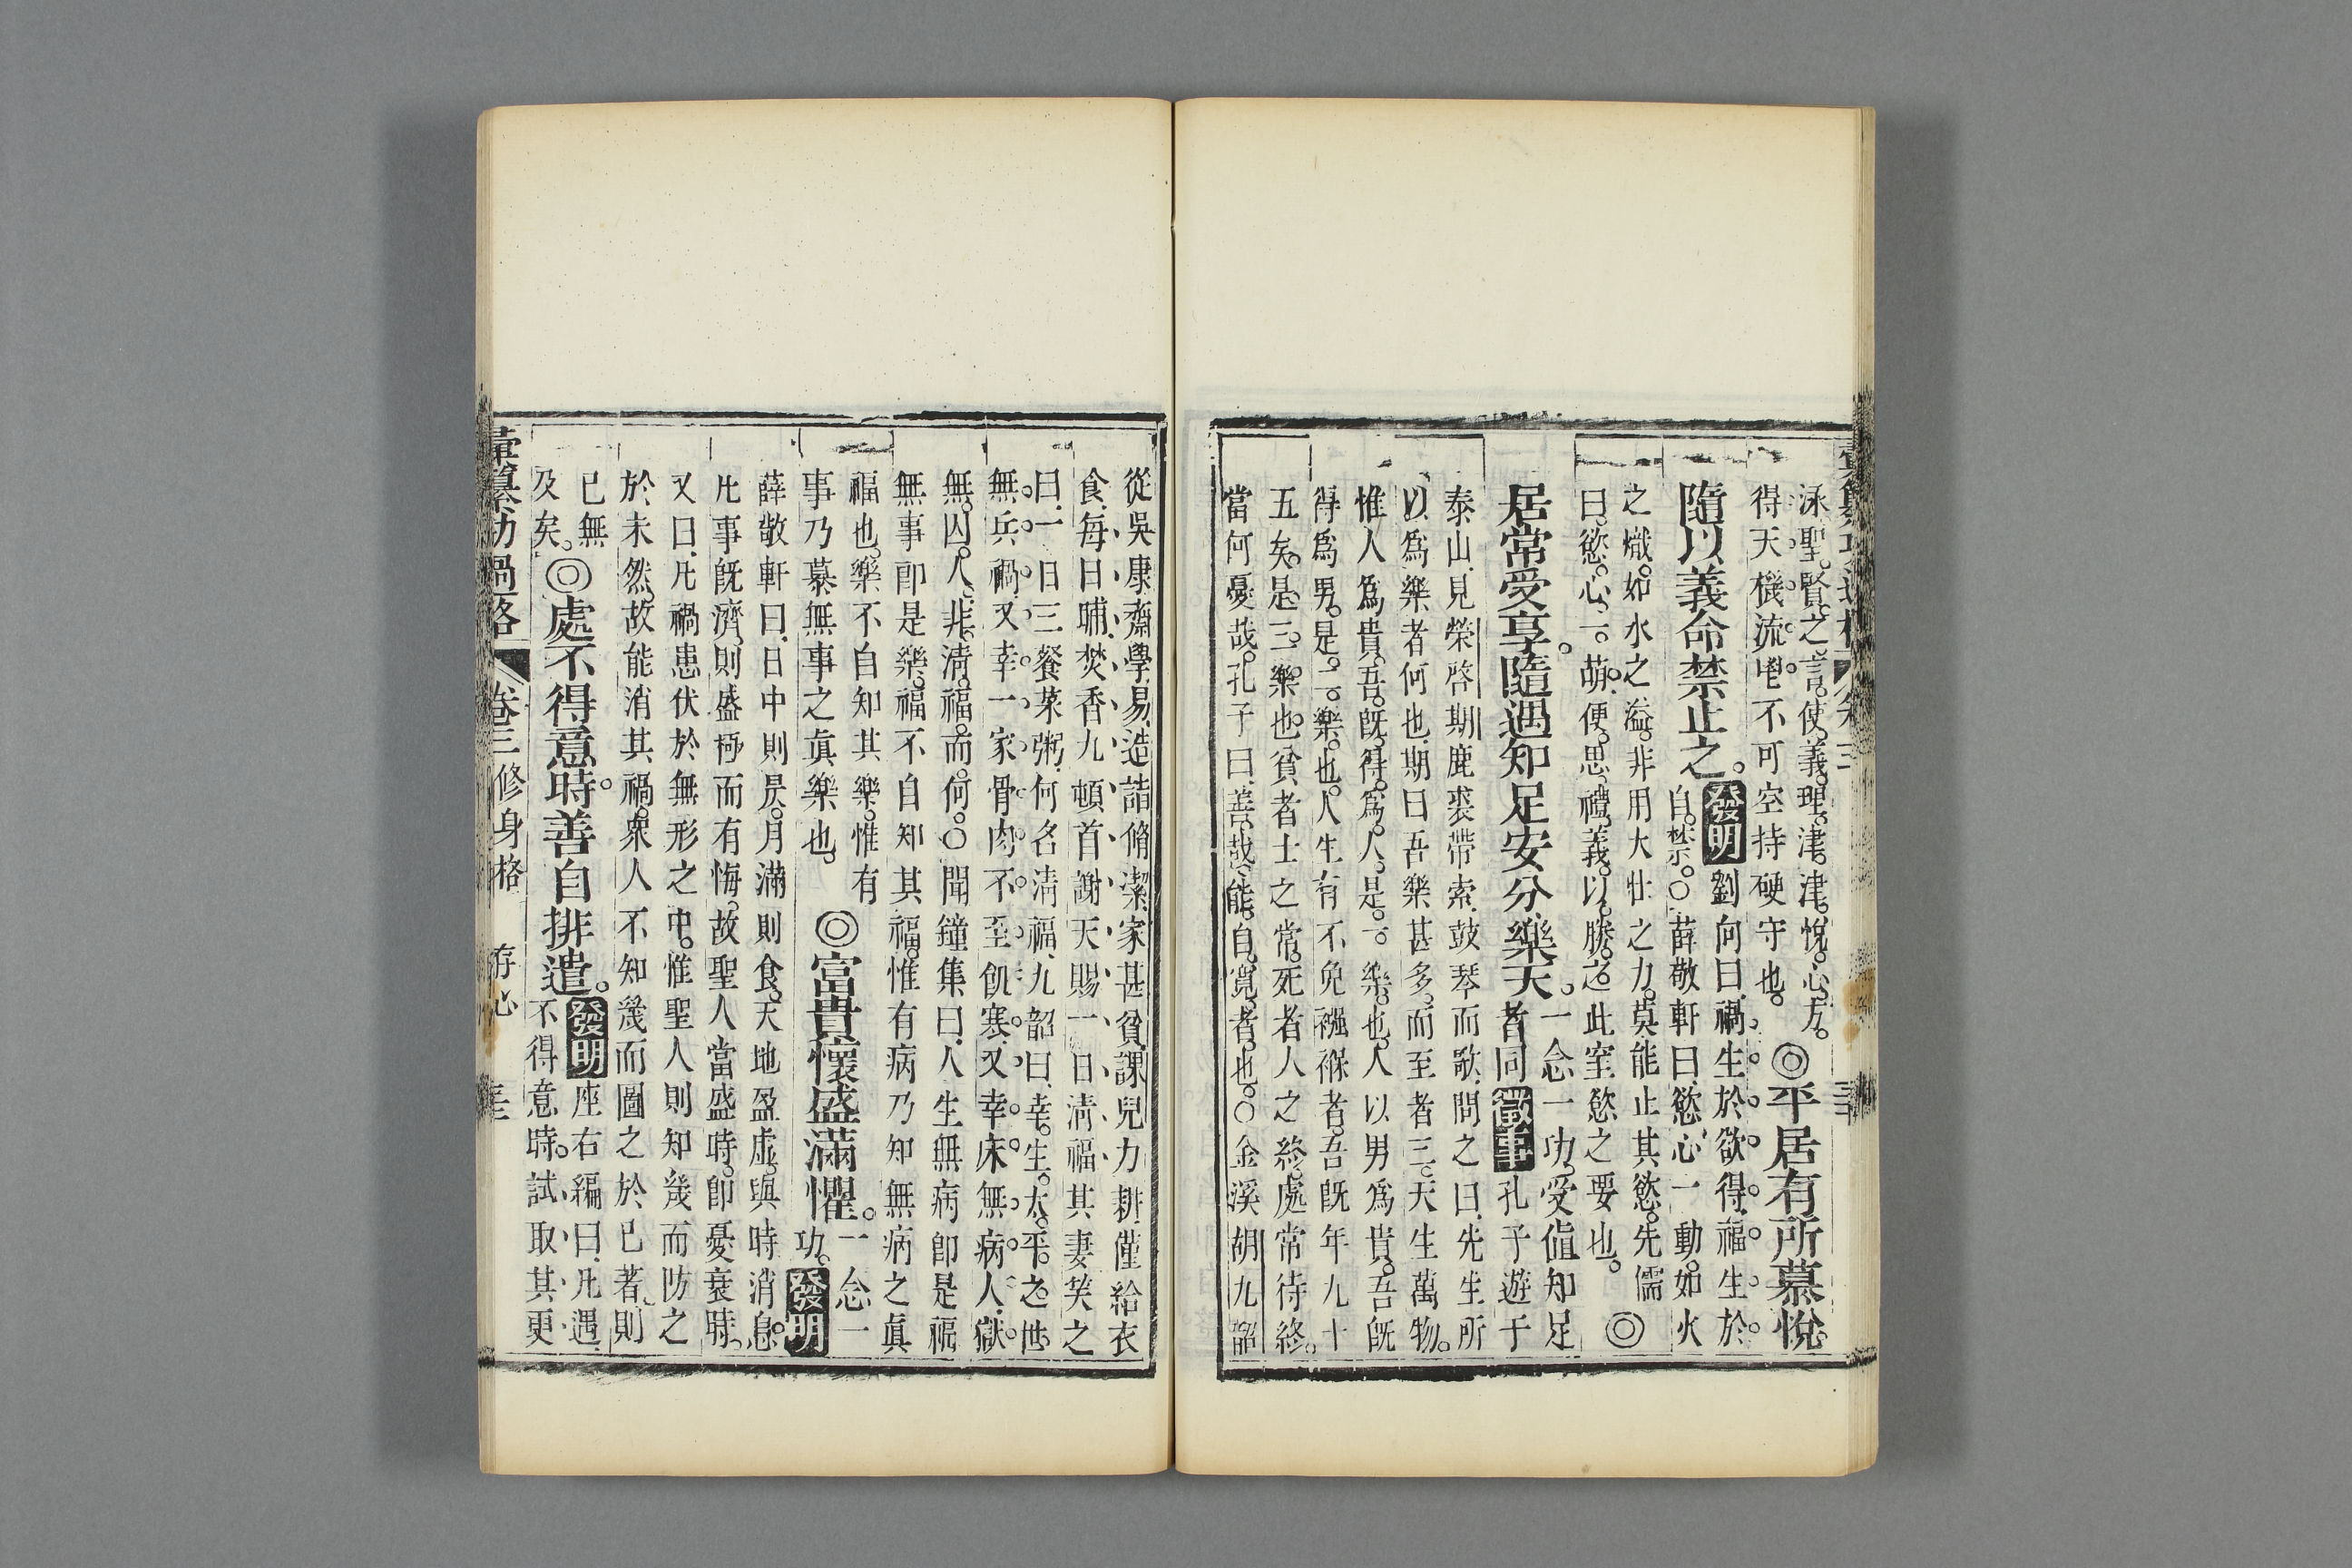 泳聖。賢。之言。使義。理。津。津。悅。心。方。
得天機流鬯。不可空持硬守也。
◎平居有所慕悅
隨以義命禁止之。
自禁。○薛敬軒曰、慾心一動。如火
發明劉向曰、禍生於欲得、福生於
之熾。如水之溢。非用大壯之力。莫能止其慾。先儒
曰。慾。心。一。萌。便。思。禮。義。以。勝。之。此窒慾之要也。
◎
居常受享。隨遇知足安分樂天。
一念一功。受値知足
者同徵事孔子遊于
泰山、見榮啓期鹿裘帶索、鼓琴而歌、問之曰、先生所
以爲樂者何也、期曰吾樂甚多、而至者三。天生萬物。
惟人爲貴。吾。旣。得。爲。人。是。一。樂。也。人以男爲貴。吾旣
得爲男。是。二。樂。也。人生有不免襁褓者。吾旣年九十
五矣。是。三。樂。也。貧者士之常。死者人之終。處常待終。
當何憂哉。孔子曰、善哉、能。自。寬。者。也。○金溪胡九韶
從吳康齋學易、造詣脩潔、家甚貧、課兒力耕、僅給衣
食、每日晡、焚香九頓首謝天賜一日清福、其妻笑之
曰、一日三餐菜粥、何名清福、九韶曰、幸。生。太。平。之。世。
無。兵。禍。又幸一家骨肉不至飢寒。又幸床無病人。獄
無。囚。人。非。清。福。而。何。○聞鐘集曰、人生無病卽是福
無事卽是樂。福不自知其福。惟有病乃知無病之眞
福也。樂不自知其樂。惟有
事乃慕無事之眞樂也。
◎富貴懷盛滿懼。
一念一
功。發明
薛敬軒曰、日中則昃。月滿則食。天地盈虛。與時消息。
凡事旣濟、則盛極而有悔。故聖人當盛時。卽憂衰時。
又曰、凡禍患伏於無形之中。惟聖人則知幾而防之
於未然、故能消其禍。衆人不知幾而圖之於已著、則
已無
及矣。
◎處不得意時。善自排遣。
發明座右編曰、凡遇
不得意時。試取其更
彙纂功過格 卷三修身格 存心